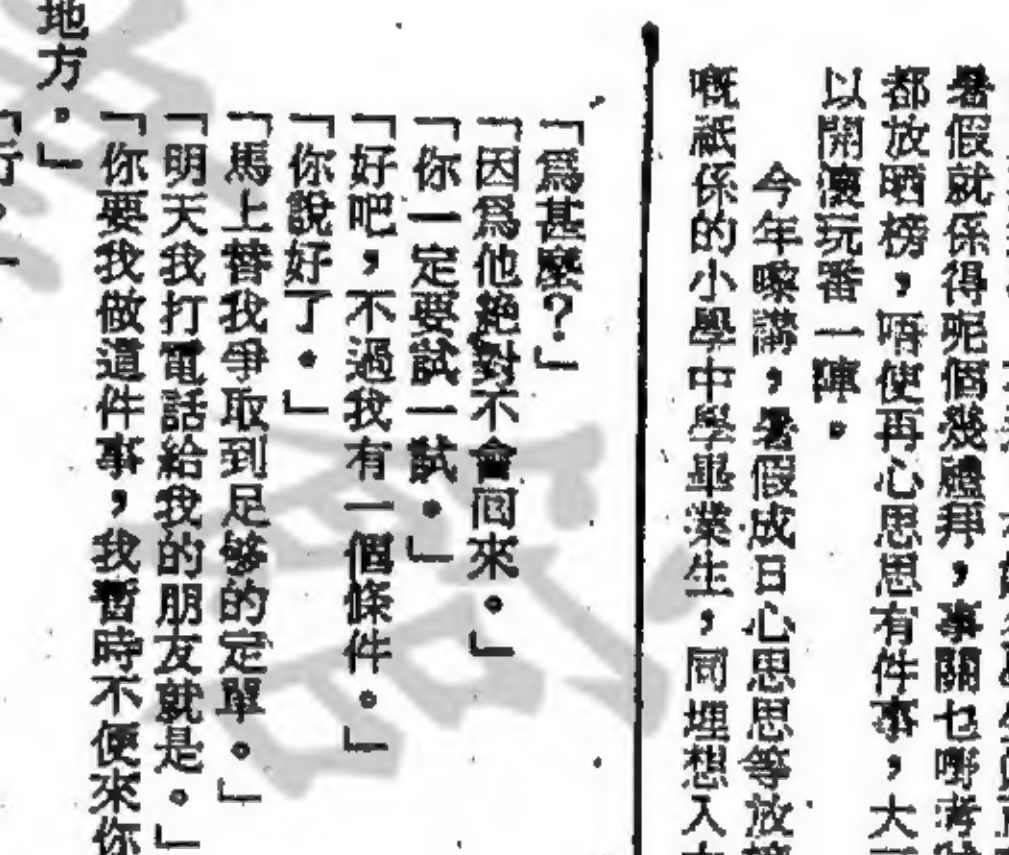 暑假就係得呢個幾禮拜，事關乜嘢考
都放晒榜，唔使再心思思有件事，大
以開懷玩番一陣。
今年嚟講，暑假成日心思思等放
嘅祇係的小學中學畢業生，同埋想入
「爲甚麼？」
「因爲他絶對不會回來。」
「你一定要試一試。」
「好吧，不過我有一個條件。」
「你說好了。」
「馬上替我爭取到足够的定單。」
「明天我打電話給我的朋友就是。」
「你要我做這件事，我暫時不便來你
地方。」
「行。」